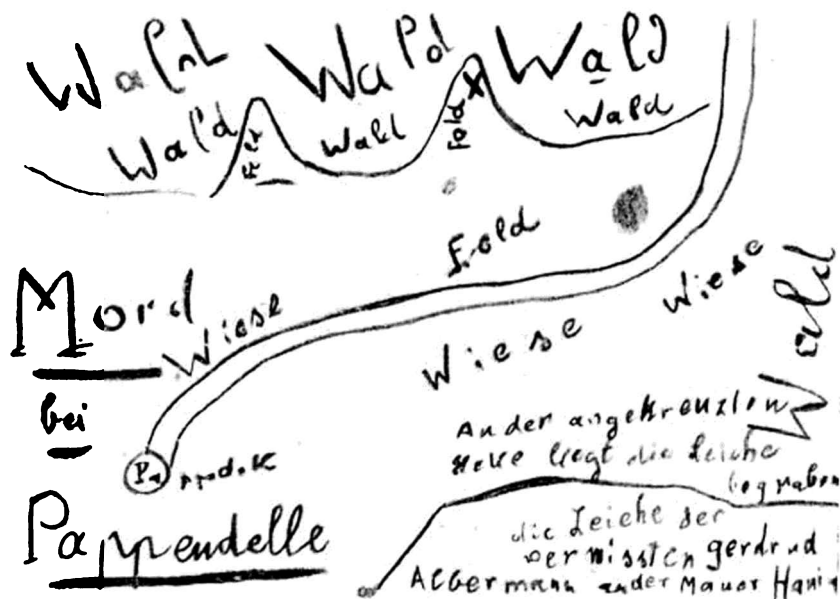 Wald Wald Wald
Wald Wald Wald
Feld
Feld
Mord
Wiese
Wiese
Wiese
Wald
bei
Pa
Pappendelle
An der angekreuzten
Stelle liegt die Leiche
begraben
die Leiche der
vermissten gerdrud
Albermann an der Mauer Hanie